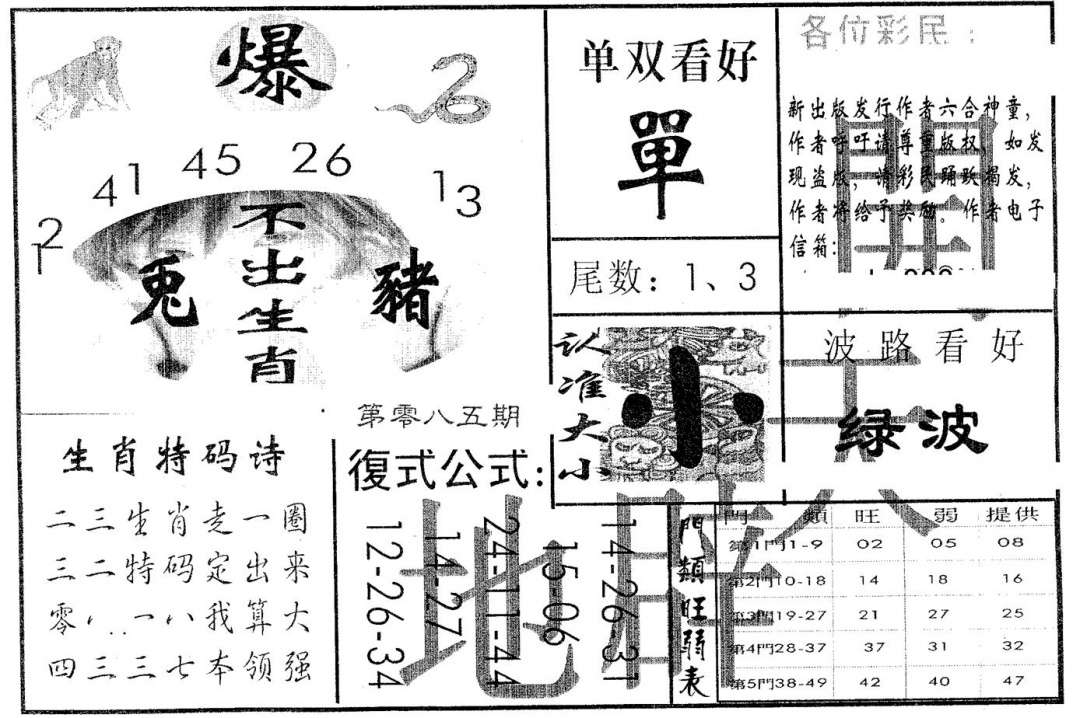 爆
12
41
45
26
13
不出生肖
兔
豬
单双看好
單
尾数：1、3
各位彩民：
新出版发行作者六合神童，
作者呼吁请尊重版权，如发
现盗版，请彩民踊跃揭发，
作者将给予奖励。作者电子
信箱：
认准大小
小
波路看好
绿波
第零八五期
生肖特码诗
二三生肖走一圈
三二特码定出来
零八一八我算大
四三三七本领强
復式公式：
12-26-34
14-27
24-11-44
15-06
14-26-31
門類旺弱表
門類 旺 弱 提供
第1門1-9 02 05 08
第2門10-18 14 18 16
第3門19-27 21 27 25
第4門28-37 37 31 32
第5門38-49 42 40 47